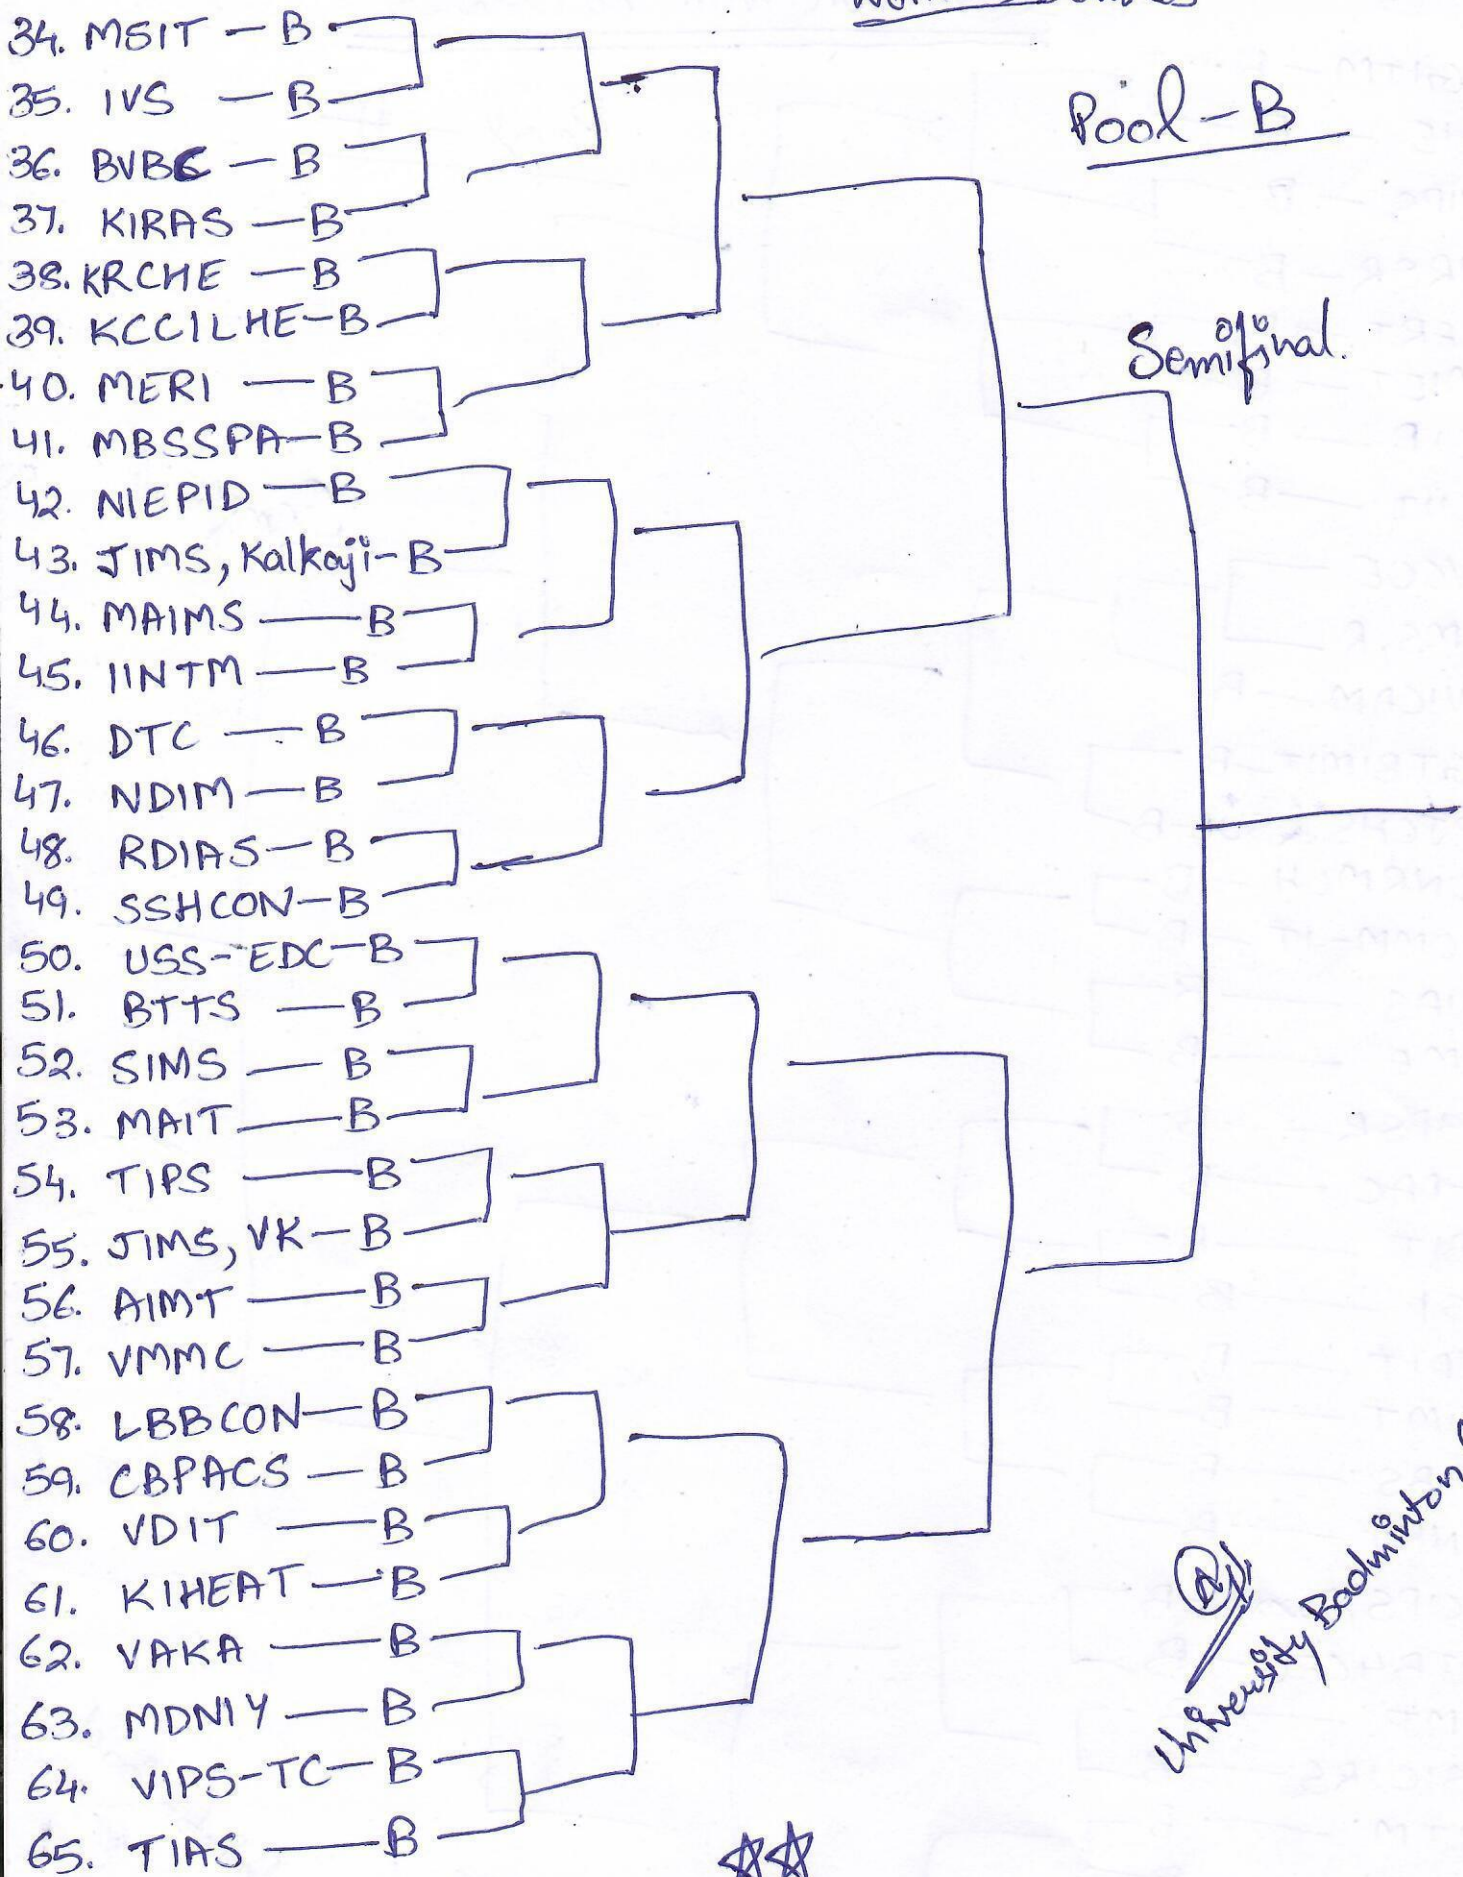 Pool-B
34. MSIT — B
35. IVS — B
36. BVBC — B
37. KIRAS — B
38. KRCHE — B
39. KCCILHE-B
Semifinal.
40. MERI — B
41. MBSSPA-B
42. NIEPID — B
43. JIMS, Kalkaji-B
44. MAIMS — B
45. IINTM — B
46. DTC — B
47. NDIM — B
48. RDIAS — B
49. SSHCON-B
50. USS-EDC-B
51. BTTS — B
52. SIMS — B
53. MAIT — B
54. TIPS — B
55. JIMS, VK — B
56. AIMT — B
57. VMMC — B
58. LBBCON — B
59. CBPACS — B
60. VDIT — B
61. KIHEAT — B
62. VAKA — B
63. MDNIY — B
64. VIPS-TC — B
65. TIAS — B
University Badminton